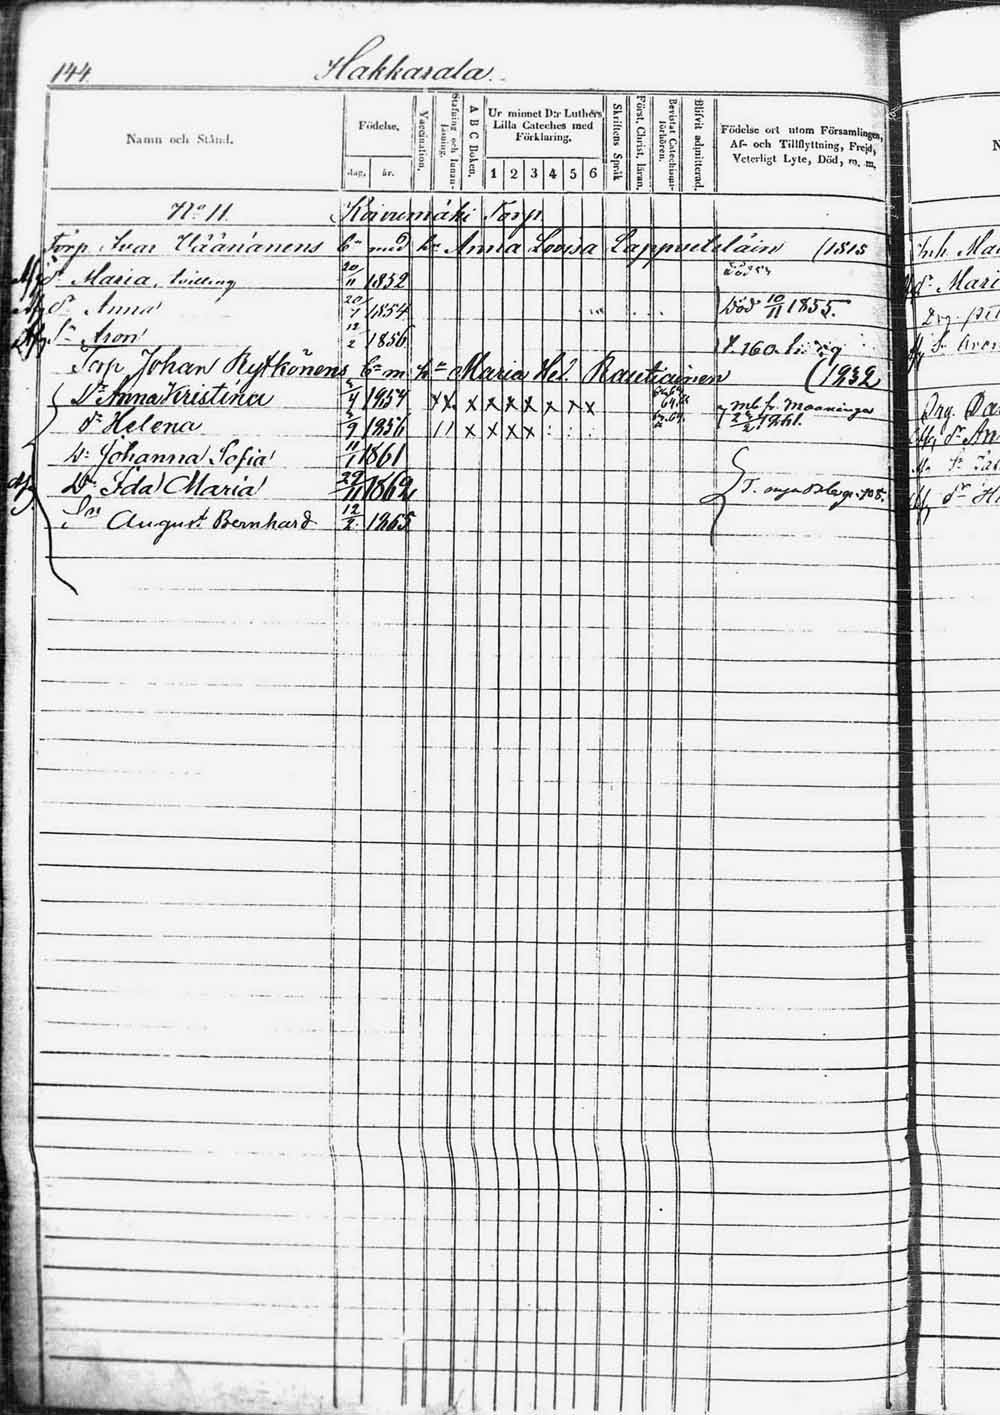 144.
Hakkarala.
Namn och Stånd.
Födelse,
dag, år.
Vaccination.
Stafning och Innanläsning.
A B C Boken.
Ur minnet D:r Luthers Lilla Cateches med Förklaring.
1 2 3 4 5 6
Skriftens Språk
Först. Christ. läran.
Bevistat Catechismiförhören.
Blifvit admitterad.
Födelse ort utom Församlingen,
Af- och Tillflyttning, Frejd,
Veterligt Lyte, Död, m. m.
No 11. Koivumäki Torp
Torp Ivar Väänänens Bn med h. Anna Lovisa Lappveteläin (1815
dr Maria, tvilling 20/11 1852
dr Anna 20/7 1854 Död 10/11 1855.
Sn Aron 12/2 1856
Torp Johan Rytkönens Bn m. hu Maria Hel. Rautiainen (1832
Dr Anna Kristina 5/4 1854 x x x x x x x x x
dr Helena 5/9 1856 x x x x
Dr Johanna Sofia 11/1 1861
Dr Ida Maria 29/11 1862
Sn August Bernhard 12/2 1865